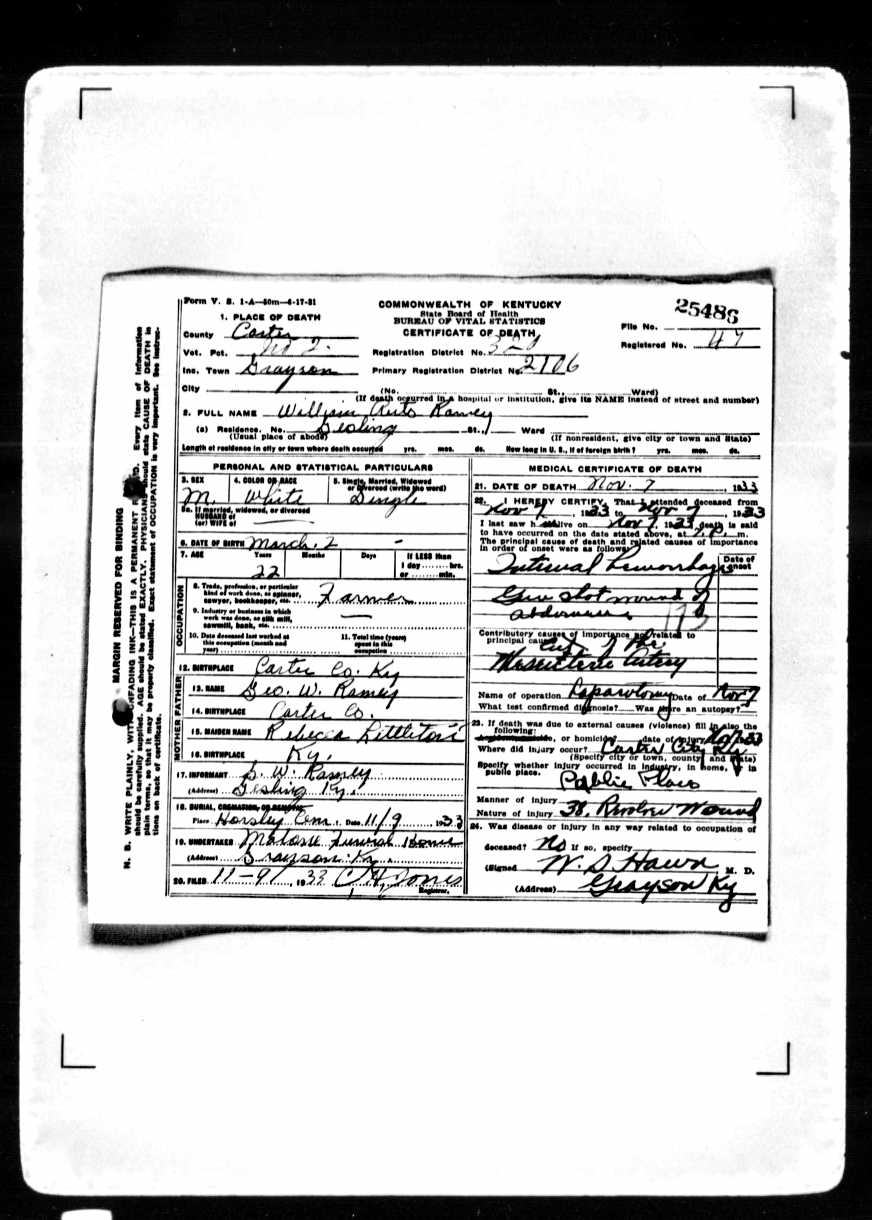 Form V. S. 1-A—50m—6-17-31
COMMONWEALTH OF KENTUCKY
State Board of Health
BUREAU OF VITAL STATISTICS
CERTIFICATE OF DEATH
25486
File No.
Registered No. 47
1. PLACE OF DEATH
County Carter
Vot. Pct. No 2.
Registration District No. 320
Inc. Town Grayson
Primary Registration District No. 2106
City (No. St., Ward)
(If death occurred in a hospital or institution, give its NAME instead of street and number)
2. FULL NAME William Ramey
(a) Residence. No. St., Ward
(Usual place of abode)
(If nonresident, give city or town and State)
Length of residence in city or town where death occurred yrs. mos. ds. How long in U. S., if of foreign birth? yrs. mos. ds.
PERSONAL AND STATISTICAL PARTICULARS
3. SEX M.
4. COLOR OR RACE White
5. Single, Married, Widowed or Divorced (write the word) Single
5a. If married, widowed, or divorced
HUSBAND of
(or) WIFE of
6. DATE OF BIRTH March. 2 -
7. AGE Years Months Days If LESS than
1 day ........ hrs.
or ........ min.
22
OCCUPATION
8. Trade, profession, or particular
kind of work done, as spinner,
sawyer, bookkeeper, etc. Farmer
9. Industry or business in which
work was done, as silk mill,
sawmill, bank, etc. —
10. Date deceased last worked at
this occupation (month and
year)
11. Total time (years)
spent in this
occupation
12. BIRTHPLACE Carter Co. Ky
FATHER
13. NAME Geo. W. Ramey
14. BIRTHPLACE Carter Co.
MOTHER
15. MAIDEN NAME Rebecca
16. BIRTHPLACE Ky.
17. INFORMANT G. W. Ramey
(Address) Ky.
18. BURIAL, CREMATION, OR REMOVAL
Place Horsley Cem. Date 11/9 1933
19. UNDERTAKER Malone Funeral Home
(Address) Grayson Ky.
20. FILED 11-9, 1933 Jones
Registrar.
MEDICAL CERTIFICATE OF DEATH
21. DATE OF DEATH Nov. 7 1933
22. I HEREBY CERTIFY, That I attended deceased from
Nov 7, 1933 to Nov 7, 1933
I last saw h alive on Nov 7, 1933 death is said
to have occurred on the date stated above, at 7. P. m.
The principal cause of death and related causes of importance
in order of onset were as follows:
Date of onset
Internal hemorrhage
Gun shot wound of
abdomen
173
Contributory causes of importance not related to
principal cause:
Cut of the
Messenteric Artery
Name of operation Laparotomy Date of Nov 7
What test confirmed diagnosis? Was there an autopsy?
23. If death was due to external causes (violence) fill in also the
following:
or homicide? date of injury 33
Where did injury occur? Carter City Ky
(Specify city or town, county and State)
Specify whether injury occurred in industry, in home, or in
public place.
Public Place
Manner of injury
Nature of injury 38. Revolver Wound
24. Was disease or injury in any way related to occupation of
deceased? No If so, specify
(Signed W. S. Hawn M. D.
(Address) Grayson Ky
MARGIN RESERVED FOR BINDING